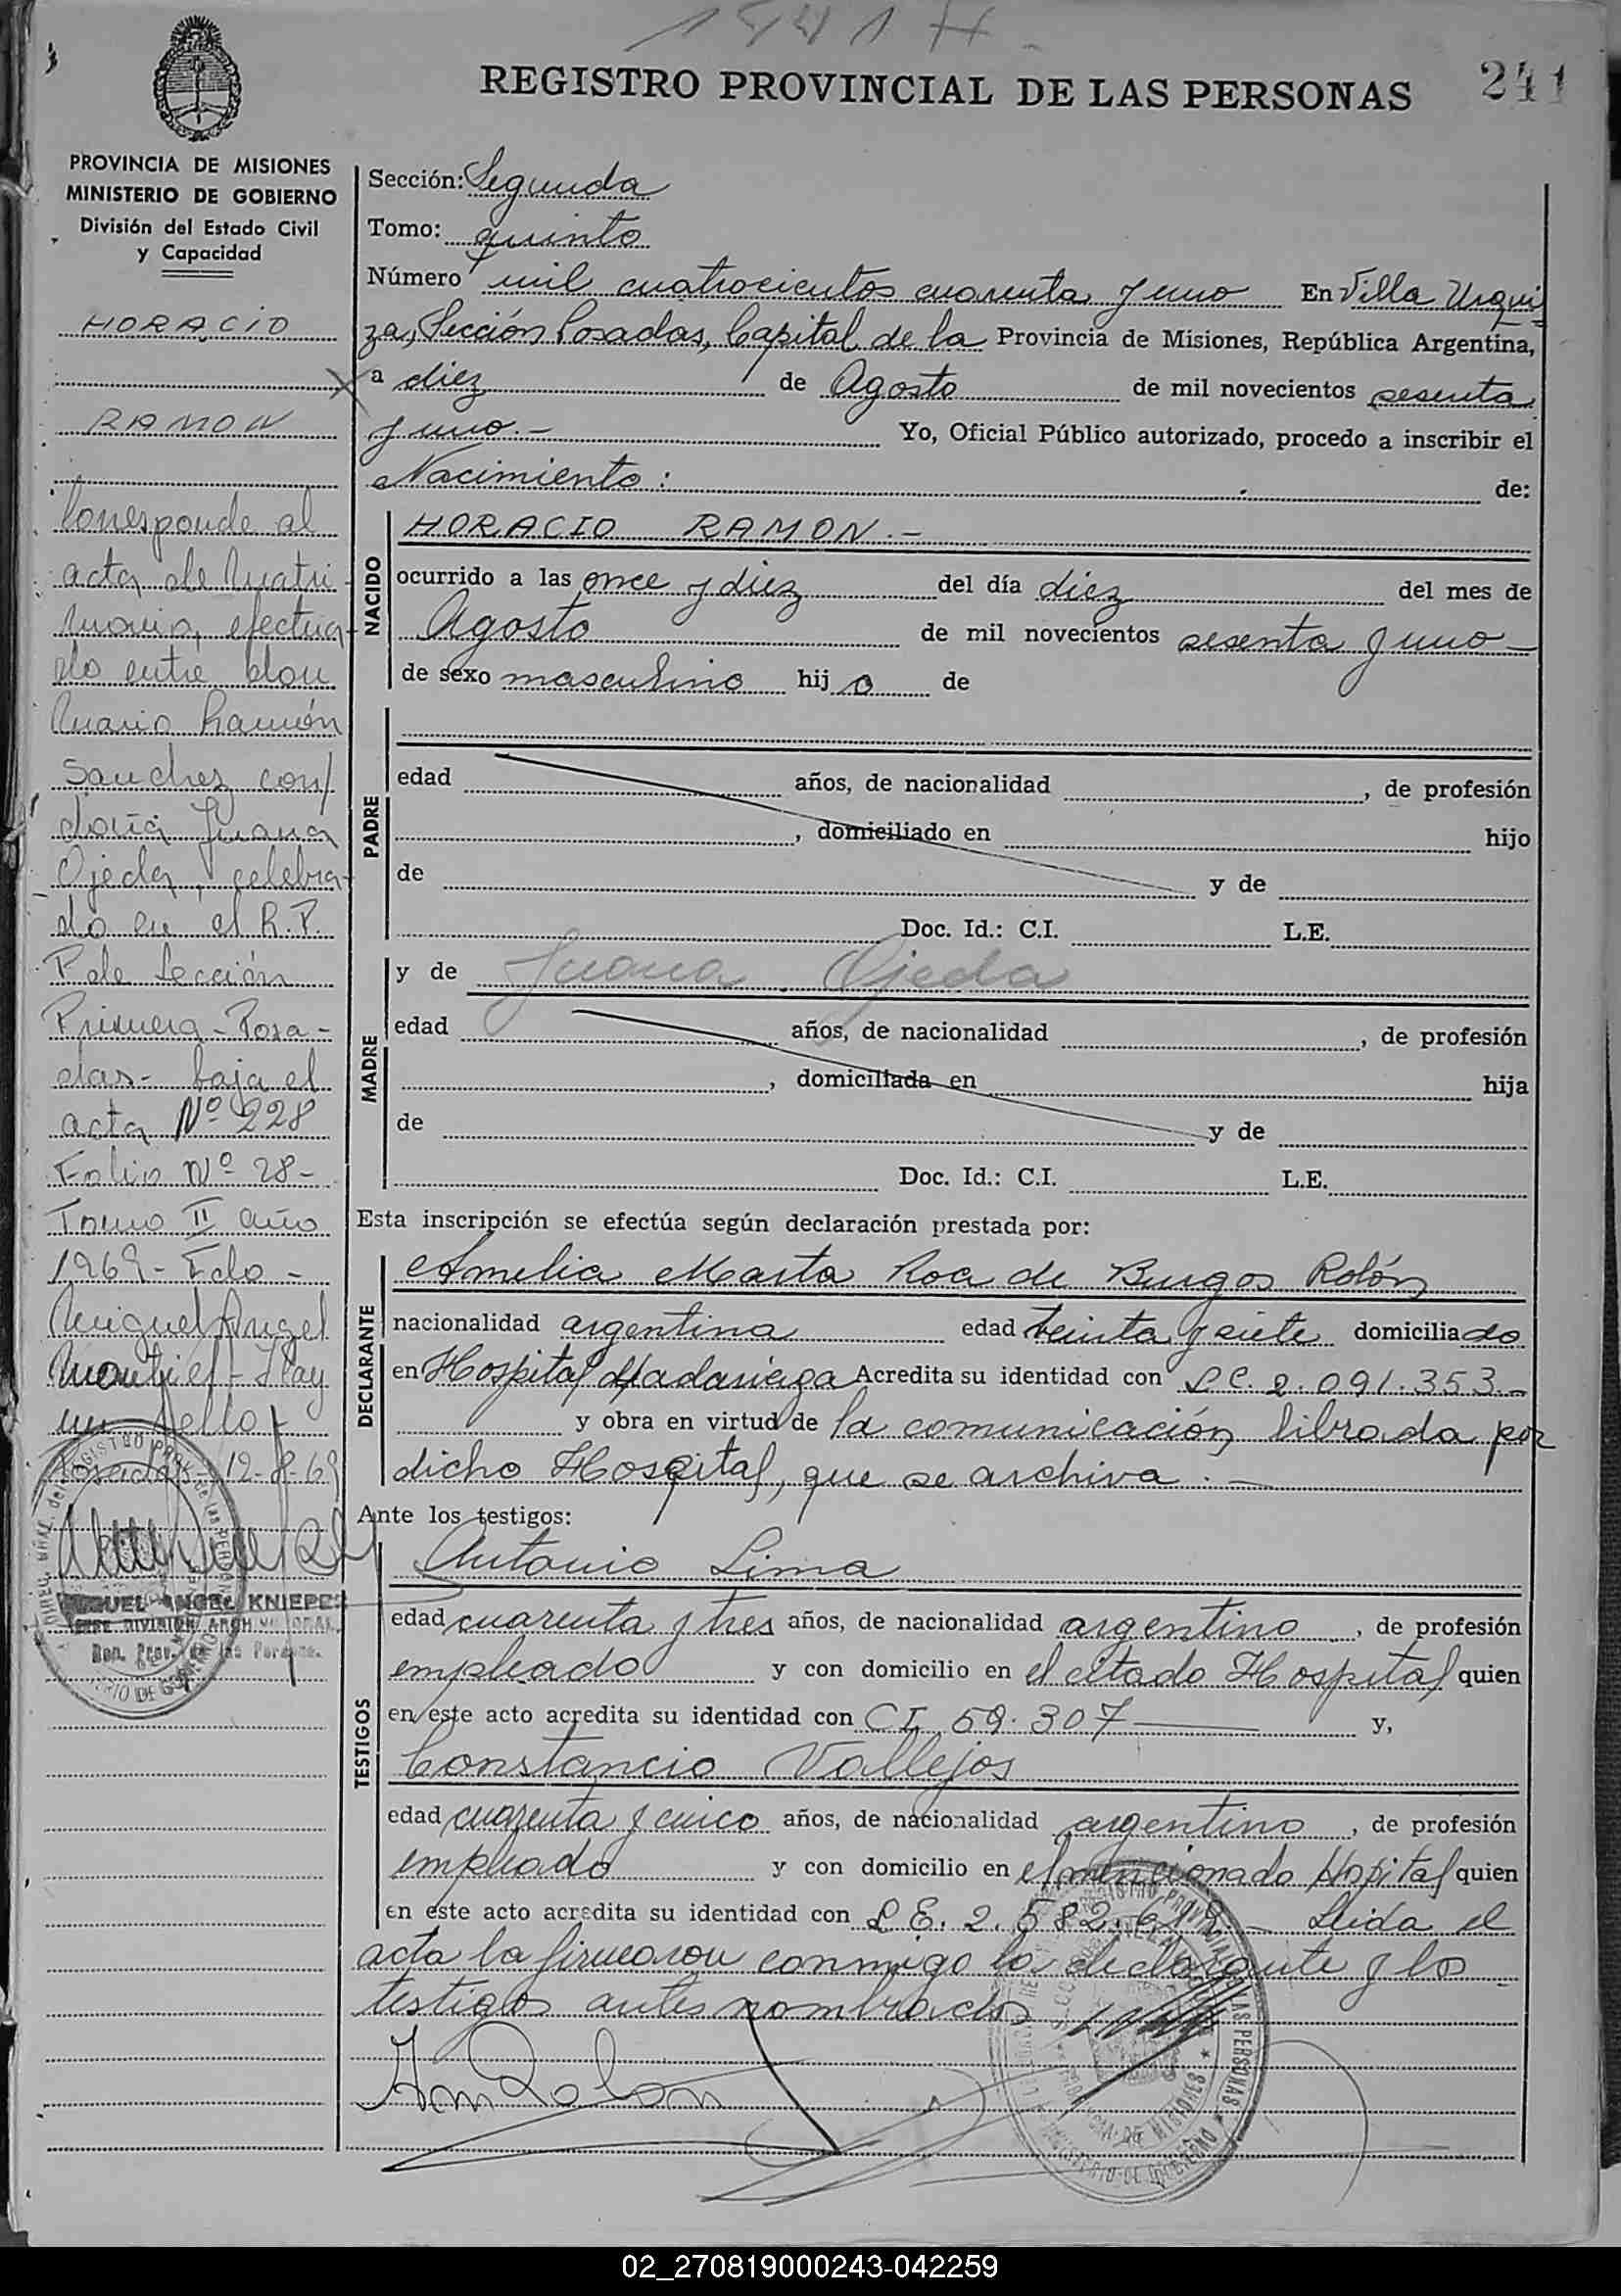 1441 H
REGISTRO PROVINCIAL DE LAS PERSONAS
241
PROVINCIA DE MISIONES
MINISTERIO DE GOBIERNO
División del Estado Civil
y Capacidad
HORACIO
RAMON
Corresponde al
acta de Matri
monio, efectua
do entre don
Mario Ramón
Sanchez con
doña Juana
Ojeda, celebra
do en el R. P.
P de Sección
Primera - Posa -
das - bajo el
acta Nº 228
Folio Nº 28 -
Tomo II año
1969 - Fdo -
Miguel Angel
Montiel - Hay
un sello -
Posadas - 12-8-69
MIGUEL ANGEL KNIEPE
JEFE DIVISION ARCH
Ren. Prov. de las Personas.
Sección: Segunda
Tomo: quinto
Número mil cuatrocientos cuarenta y uno En Villa Urqui
za, Sección Posadas, Capital de la Provincia de Misiones, República Argentina,
a diez de Agosto de mil novecientos sesenta
y uno.- Yo, Oficial Público autorizado, procedo a inscribir el
Nacimiento: de:
NACIDO
HORACIO RAMON.-
ocurrido a las once y diez del día diez del mes de
Agosto de mil novecientos sesenta y uno
de sexo masculino hijo de
PADRE
edad años, de nacionalidad , de profesión
, domiciliado en hijo
de y de
Doc. Id.: C.I. L.E.
MADRE
y de Juana Ojeda
edad años, de nacionalidad , de profesión
, domiciliada en hija
de y de
Doc. Id.: C.I. L.E.
Esta inscripción se efectúa según declaración prestada por:
DECLARANTE
Amelia Marta Roa de Burgos Rolón
nacionalidad argentina edad treinta y siete domiciliado
en Hospital Madariaga Acredita su identidad con L C. 2.091.353 -
y obra en virtud de la comunicación librada por
dicho Hospital, que se archiva . -
Ante los testigos:
TESTIGOS
Antonio Lima
edad cuarenta y tres años, de nacionalidad argentino , de profesión
empleado y con domicilio en el citado Hospital quien
en este acto acredita su identidad con C I. 59.307 y,
Constancio Vallejos
edad cuarenta y cinco años, de nacionalidad argentino , de profesión
empleado y con domicilio en el mencionado Hospital quien
en este acto acredita su identidad con L E. 2. 582. - Leida el
acta la firmaron conmigo la declarante y los
testigos antes nombrados
Am Rolon
02_270819000243-042259